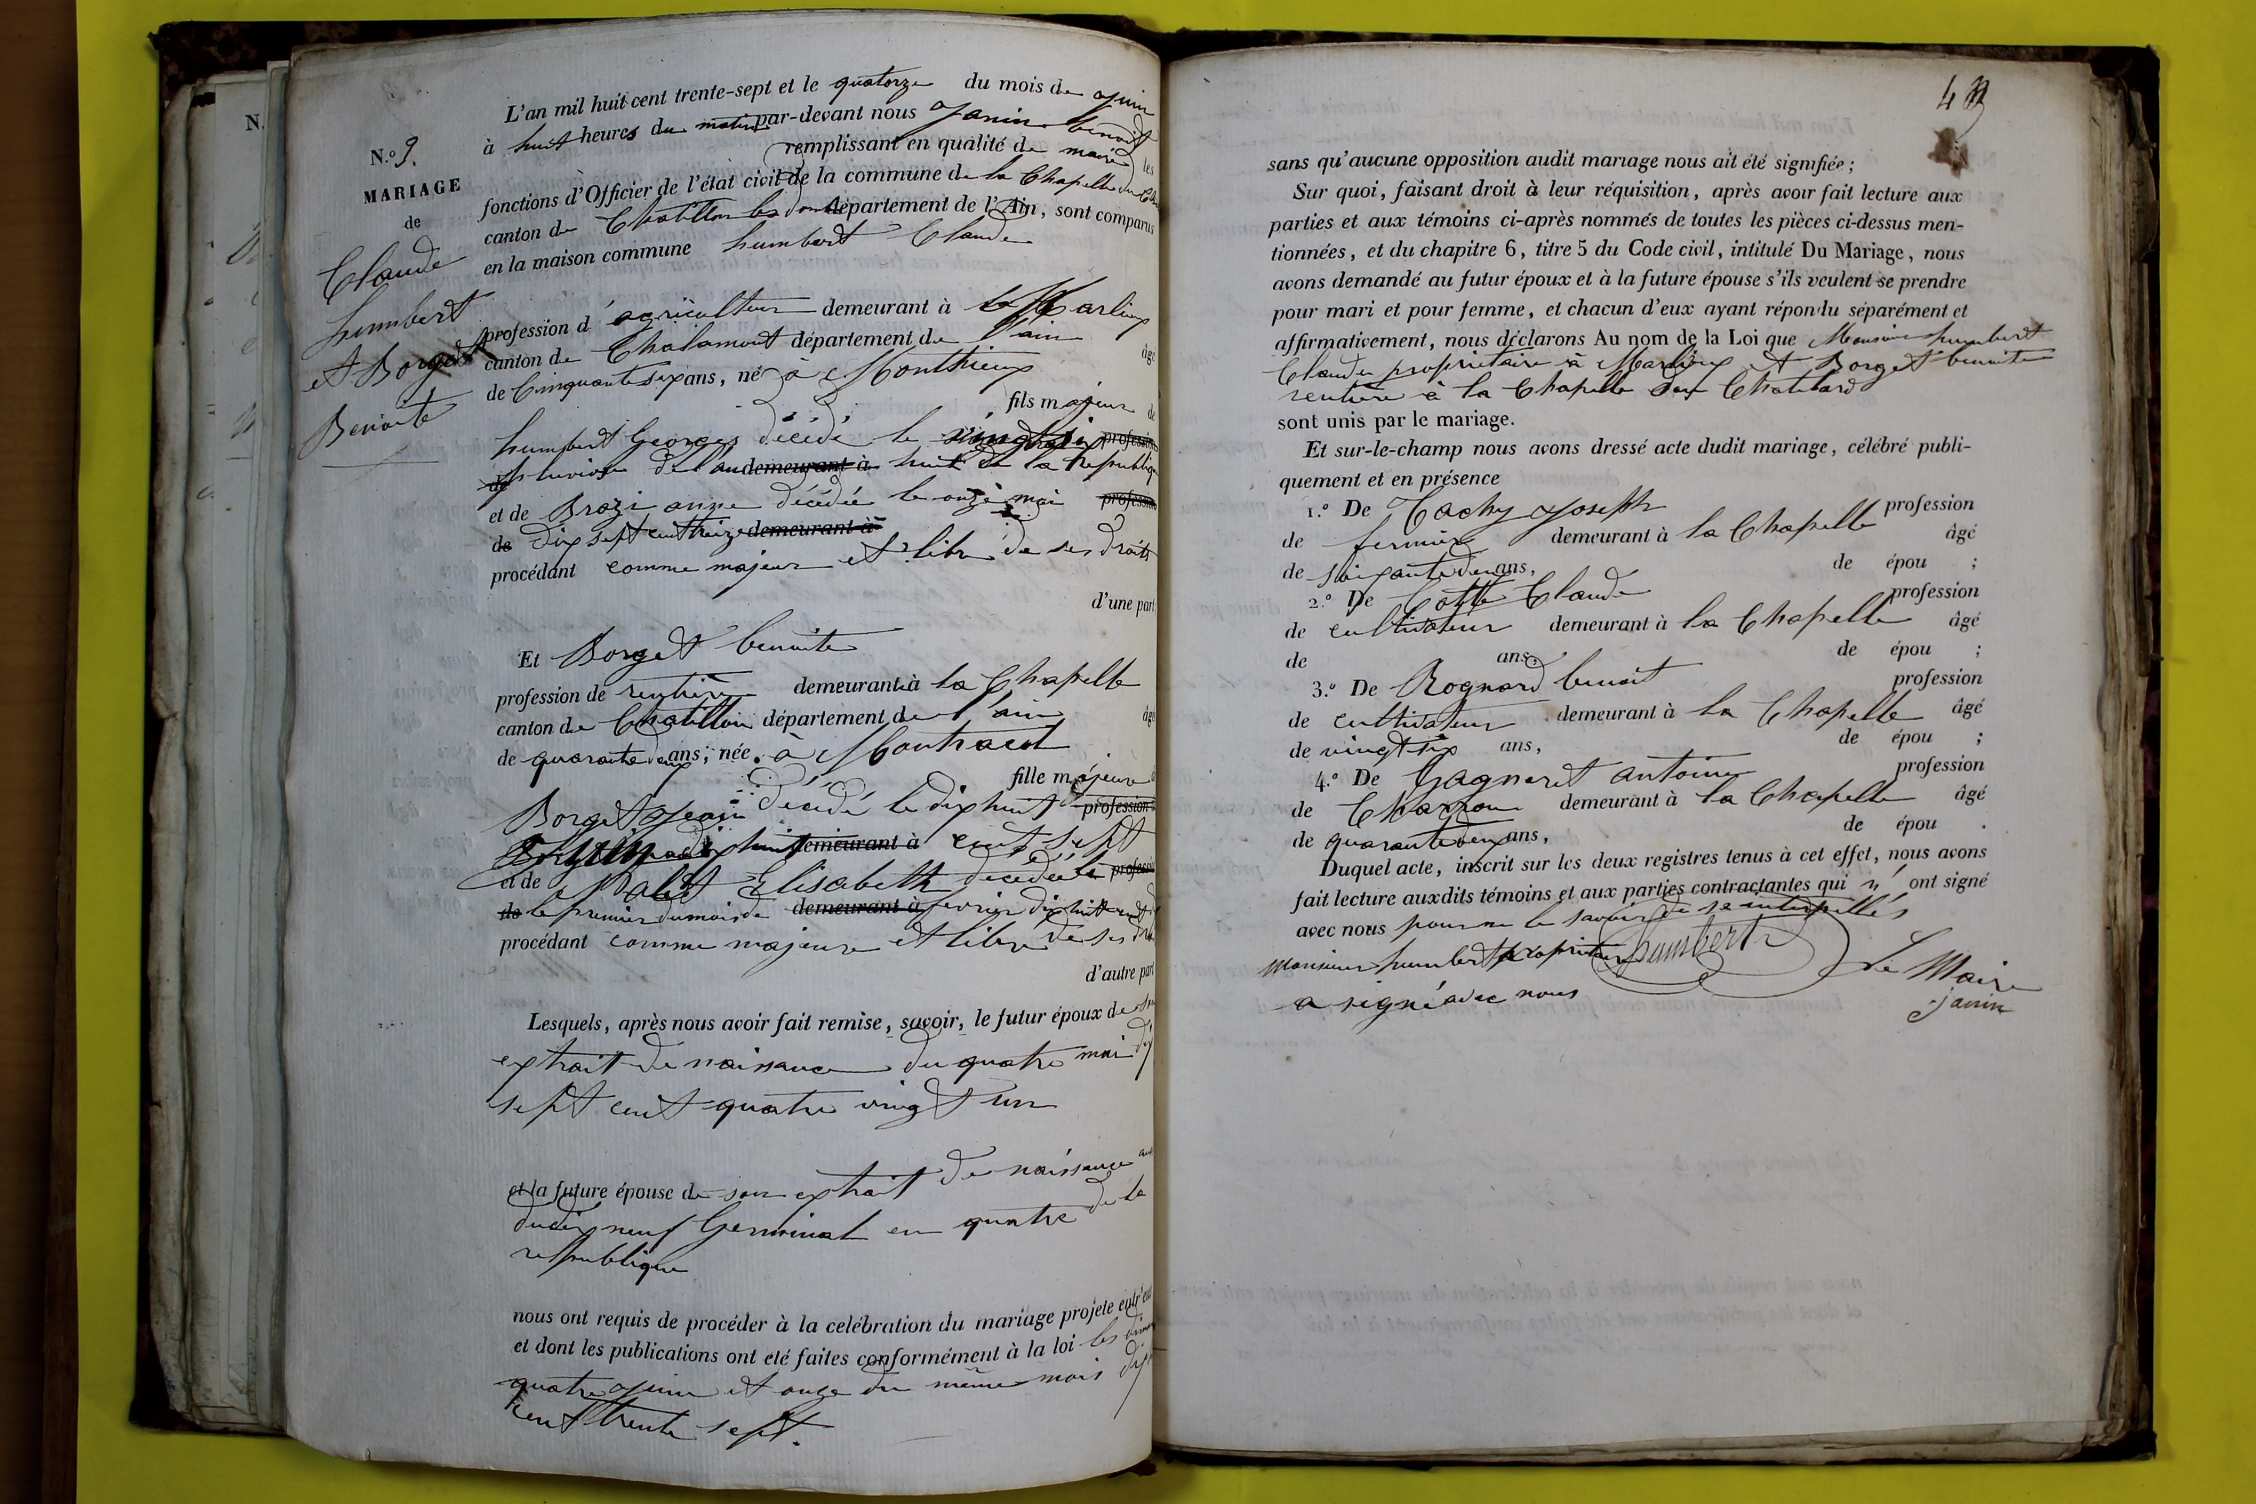 N.º 9.
MARIAGE
de
Claude
humbert
et Borget
Benoite
L'an mil huit cent trente-sept et le quatorze du mois de juin
à huit heures du matin par-devant nous Janin benoit
remplissant en qualité de maire les
fonctions d'Officier de l'état civil de la commune de la Chapelle du
canton de Chatillon les département de l'Ain, sont comparus
en la maison commune humbert Claude
profession d'agriculteur demeurant à Marlieux
canton de Chalamont département de l'ain âgé
de Cinquante six ans, né à Monthieux
fils majeur de
humbert Georges décédé le vingt six profession
de pluviose de l'an demeurant à huit de la republique
et de Brazi anne décédée le onze mai profession
de dix sept cent treize demeurant à
procédant comme majeur et libre de ses droits
d'une part
Et Borget benoite
profession de rentière demeurant à la Chapelle
canton de Chatillon département de l'ain âgé
de quarante deux ans, née à Montracol
fille majeure
Borget Jean décédé le dix huit profession
dix huit demeurant à cent sept
et de Elisabeth décédée le profession
de le premier du mois de demeurant à fevrier dix huit cent
procédant comme majeure et libre de ses
d'autre part
Lesquels, après nous avoir fait remise, savoir, le futur époux de son
extrait de naissance du quatre mai dix
sept cent quatre vingt un
et la future épouse de son extrait de naissance
du dix neuf Germinal en quatre de la
republique
nous ont requis de procéder à la celébration du mariage projeté entr'eux
et dont les publications ont été faites conformément à la loi les
quatre juin et onze du même mois dix
cent trente sept.
sans qu'aucune opposition audit mariage nous ait été signifiée;
Sur quoi, faisant droit à leur réquisition, après avoir fait lecture aux
parties et aux témoins ci-après nommés de toutes les pièces ci-dessus men-
tionnées, et du chapitre 6, titre 5 du Code civil, intitulé Du Mariage, nous
avons demandé au futur époux et à la future épouse s'ils veulent se prendre
pour mari et pour femme, et chacun d'eux ayant répondu séparément et
affirmativement, nous déclarons Au nom de la Loi que Monsieur humbert
Claude proprietaire à Marlieux et Borget benoite
rentière à la Chapelle du Chatelard
sont unis par le mariage.
Et sur-le-champ nous avons dressé acte dudit mariage, célébré publi-
quement et en présence
1.º De Tachy Joseph profession
de fermier demeurant à la Chapelle âgé
de soixante deux ans, de épou ;
2.º De Cotte Claude profession
de cultivateur demeurant à la Chapelle âgé
de ans, de épou ;
3.º De Rognard benoit profession
de cultivateur demeurant à la Chapelle âgé
de vingt six ans, de épou ;
4.º De Gagneret antoine profession
de Charron demeurant à la Chapelle âgé
de quarante deux ans, de épou .
Duquel acte, inscrit sur les deux registres tenus à cet effet, nous avons
fait lecture auxdits témoins et aux parties contractantes qui n'ont signé
avec nous pour ne le savoir de ce interpellés
monsieur humbert proprietaire humbert
a signé avec nous
Le Maire
janin